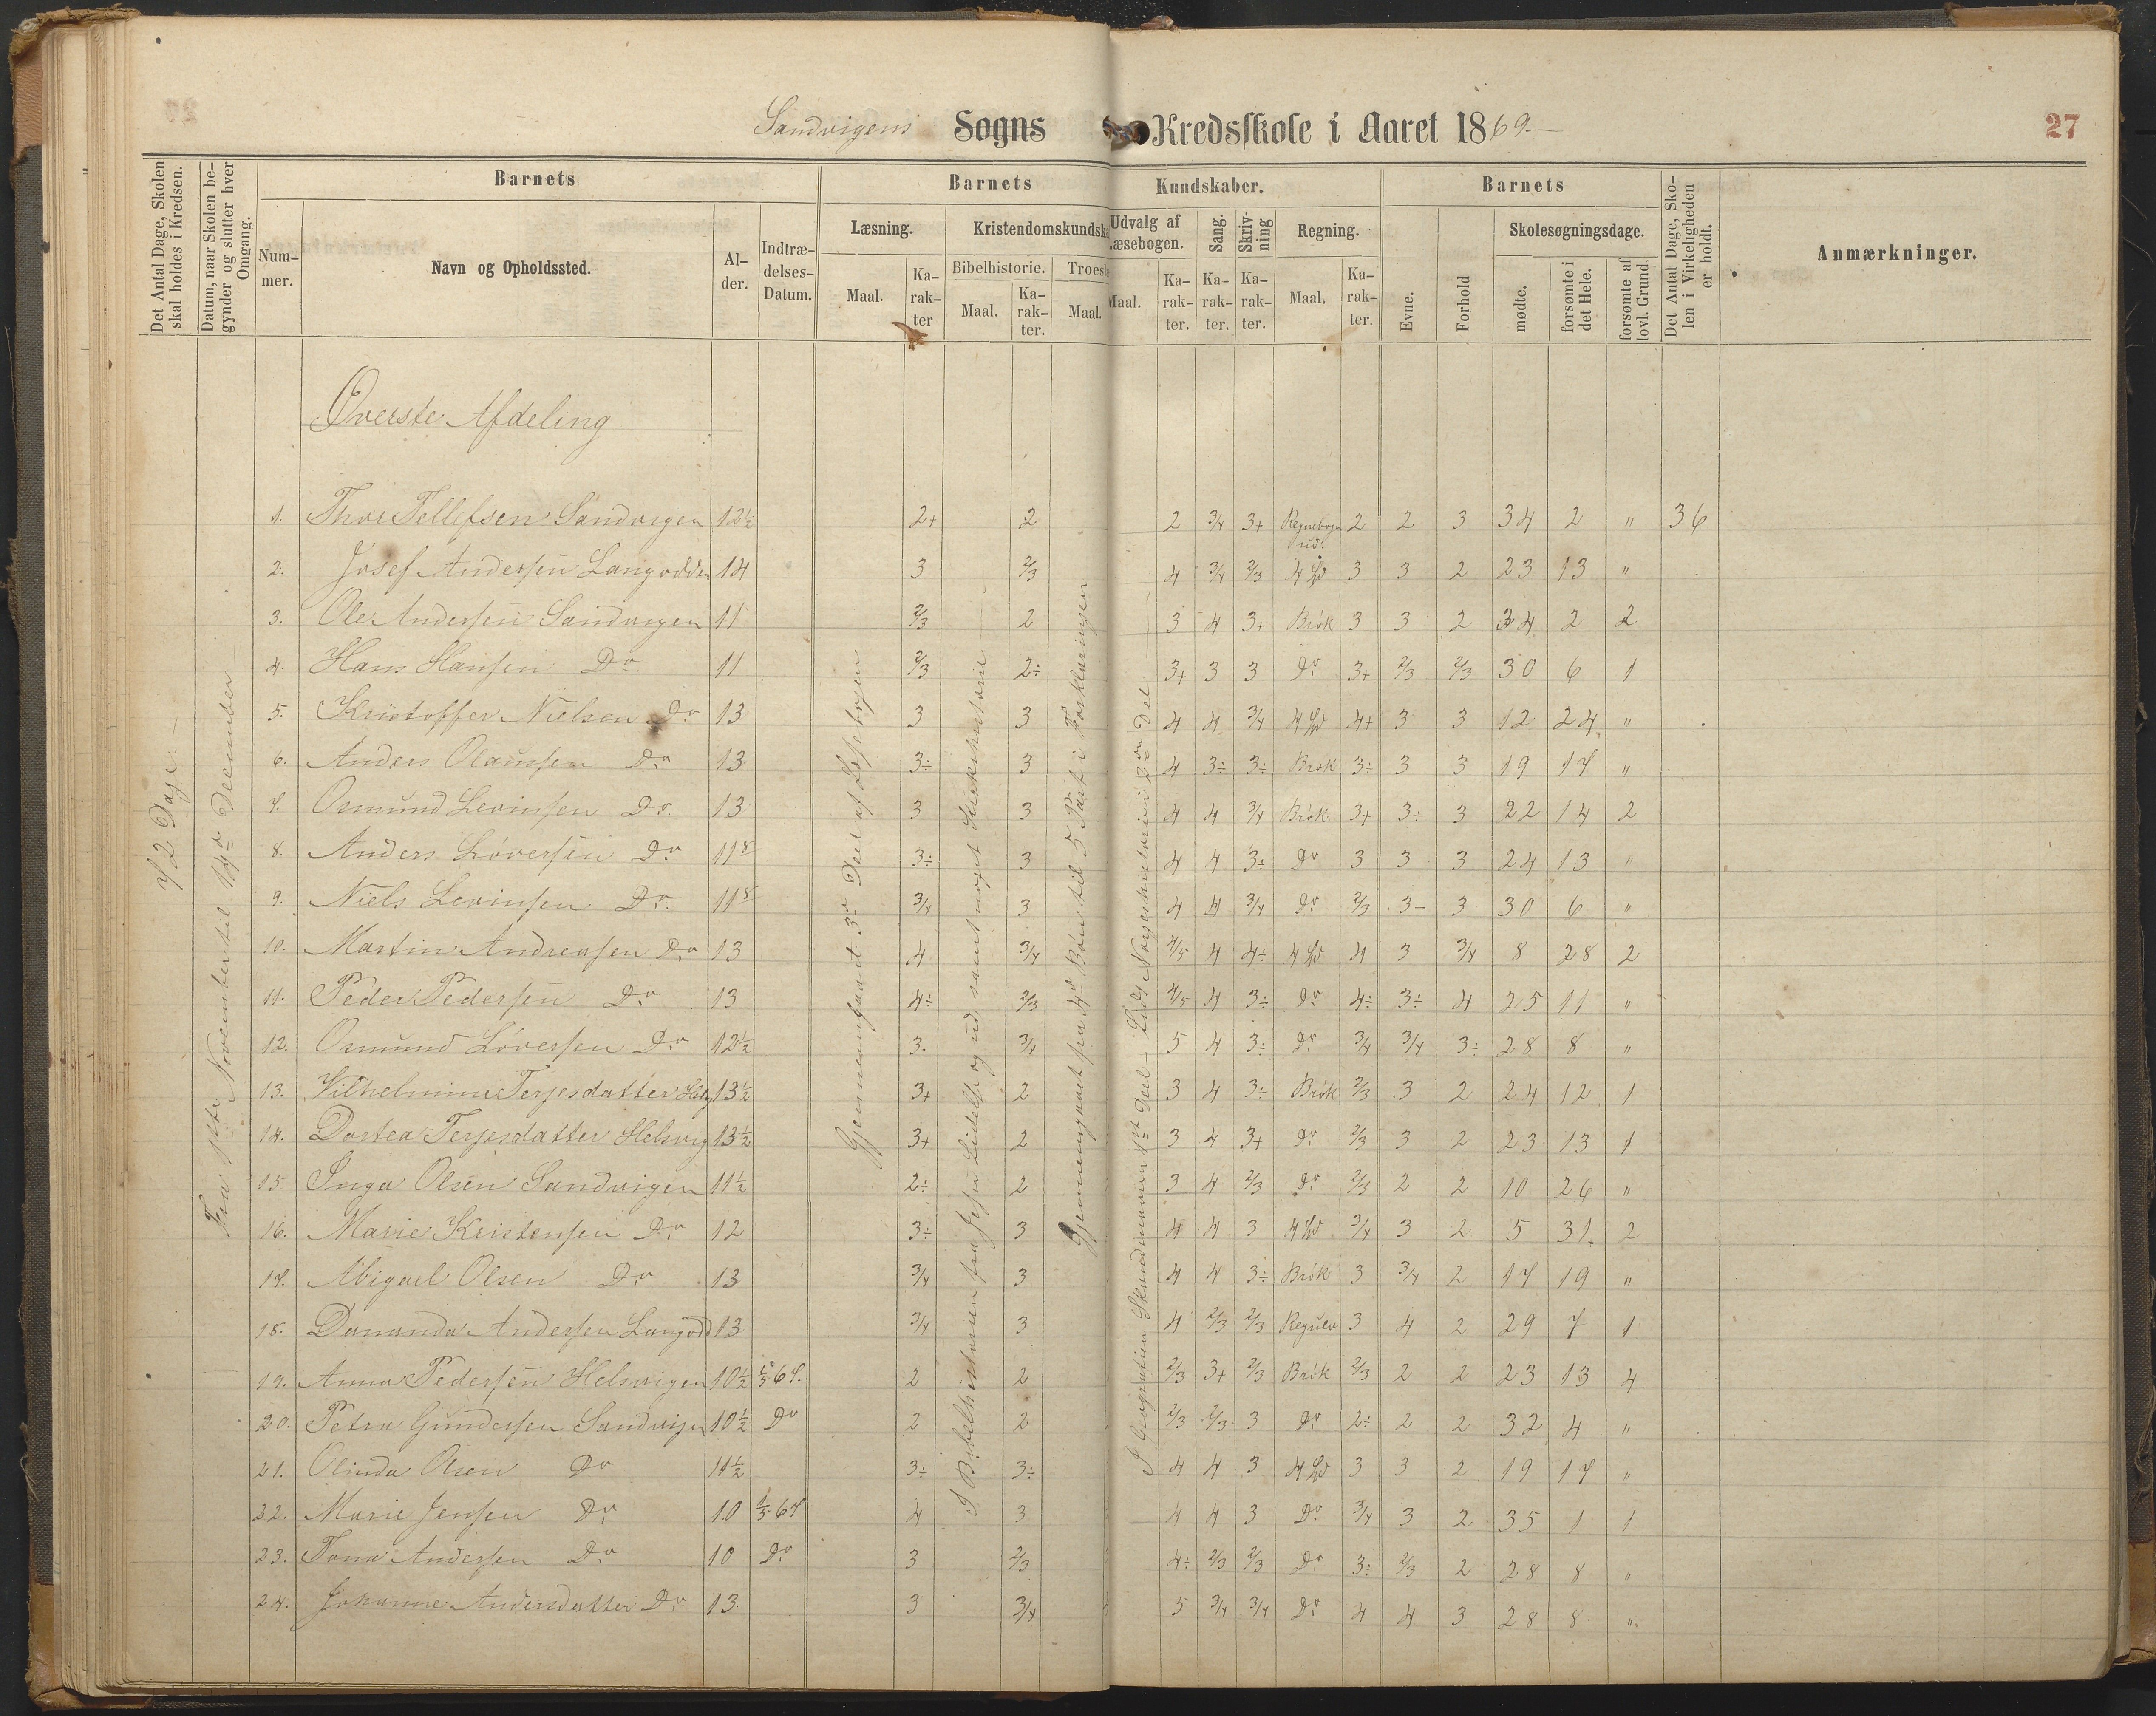 Sandvigens Sogns Kredsskole i Aaret 1869.— 27
Det Antal Dage, Skolen skal holdes i Kredsen.
Datum, naar Skolen begynder og slutter hver Omgang.
Barnets
Nummer.
Navn og Opholdssted.
Alder.
Indtrædelses-Datum.
Barnets Kundskaber.
Læsning.
Maal. Karakter
Kristendomskundska
Bibelhistorie.
Maal. Karakter.
Troesl
Maal.
Udvalg af Læsebogen.
Maal. Karakter.
Sang. Karakter.
Skrivning Karakter.
Regning.
Maal. Karakter.
Barnets
Evne.
Forhold
Skolesøgningsdage.
mødte.
forsømte i det Hele.
forsømte af lovl. Grund.
Det Antal Dage, Skolen i Virkeligheden er holdt.
Anmærkninger.
72 Dage —
Fra 1ste November til 14de December
Øverste Afdeling
Gjennemgaaet 3die Deel af Læsebogen
I Bibelhistorien fra Jesu Lidelse og ud, samt noget Kirkehistorie
Gjennemgaaet fra 4de Bøn til 5 Part i Forklaringen
I Geografien Skandinavien 1ste Deel — Lidt Norgeshistorie i 2den Del
1. Thor Tellefsen Sandvigen 12½ 2+ 2 2 3/4 3+ Regnebogen ud. 2 2 3 34 2 " 36
2. Josef Andersen Langodden 14 3 2/3 4 3/4 2/3 4 Sp 3 3 2 23 13 "
3. Ole Andersen Sandvigen 11 2/3 2 3 4 3+ Brøk 3 3 2 34 2 2
4. Hans Hansen Do 11 2/3 2÷ 3+ 3 3 Do 3+ 2/3 2/3 30 6 1
5. Kristoffer Nielsen Do 13 3 3 4 4 3/4 4 Sp 4+ 3 3 12 24 "
6. Anders Olaussen Do 13 3÷ 3 4 3÷ 3÷ Brøk 3÷ 3 3 19 17 "
7. Osmund Levinsen Do 13 3 3 4 4 3/4 Brøk 3+ 3÷ 3 22 14 2
8. Anders Løversen Do 11 3÷ 3 4 4 3÷ Do 3 3 3 24 13 "
9. Niels Levinsen Do 11 3/4 3 4 4 3/4 Do 2/3 3- 3 30 6 "
10. Martin Andreasen Do 13 4 3/4 4/5 4 4÷ 4 Sp 4 3 3/4 8 28 2
11. Peder Pedersen Do 13 4÷ 2/3 4/5 4 3÷ Do 4÷ 3÷ 4 25 11 "
12. Osmund Løversen Do 12½ 3 3/4 5 4 3÷ Do 3/4 3/4 3÷ 28 8 "
13. Vilhelmine Terjesdatter 13½ 3+ 2 3 4 3÷ Brøk 2/3 3 2 24 12 1
14. Dortea Terjesdatter Helsvig 13½ 3+ 2 3 4 3+ Do 2/3 3 2 23 13 1
15 Inga Olsen Sandvigen 11½ 2÷ 2 3 4 2/3 Do 2/3 2 2 10 26 "
16. Marie Kristensen Do 12 3÷ 3 4 4 3 4 Sp 3/4 3 2 5 31 2
17. Abigael Olsen Do 13 3/4 3 4 4 3÷ Brøk 3 3/4 2 17 19 "
18. Dananda Andersen Langodd 13 3/4 3 4 2/3 2/3 3 4 2 29 7 1
19. Anna Pedersen Helsvigen 10½ 67. 2 2 2/3 3+ 2/3 Brøk 2/3 2 2 23 13 4
20. Petra Gundersen Sandvigen 10½ Do 2 2 2/3 2/3 3 Do 2÷ 2 2 32 4 "
21. Olinda Olsen Do 11½ 3÷ 3÷ 4 4 3 4 Sp 3 3 2 19 17 "
22. Marie Jensen Do 10 1/5 67 4 3 4 4 3 Do 3/4 3 2 35 1 1
23. Tona Andersen Do 10 Do 3 2/3 4÷ 2/3 2/3 Do 3÷ 2/3 2 28 8 "
24. Johanne Andersdatter Do 13 3 3/4 5 3/4 3/4 Do 4 4 3 28 8 "